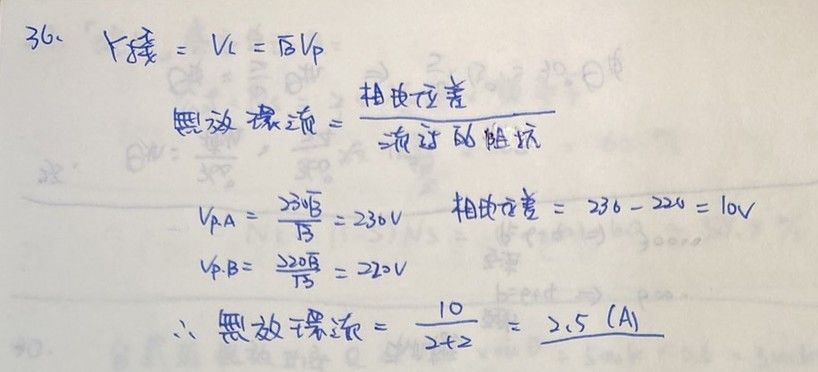 36. Y接 = VL = √3Vp
無效環流 = 相電位差 / 流過的阻抗
Vp.A = 230√3 / √3 = 230V 相電位差 = 230 - 220 = 10V
Vp.B = 220√3 / √3 = 220V
∴ 無效環流 = 10 / 2+2 = 2.5 (A)